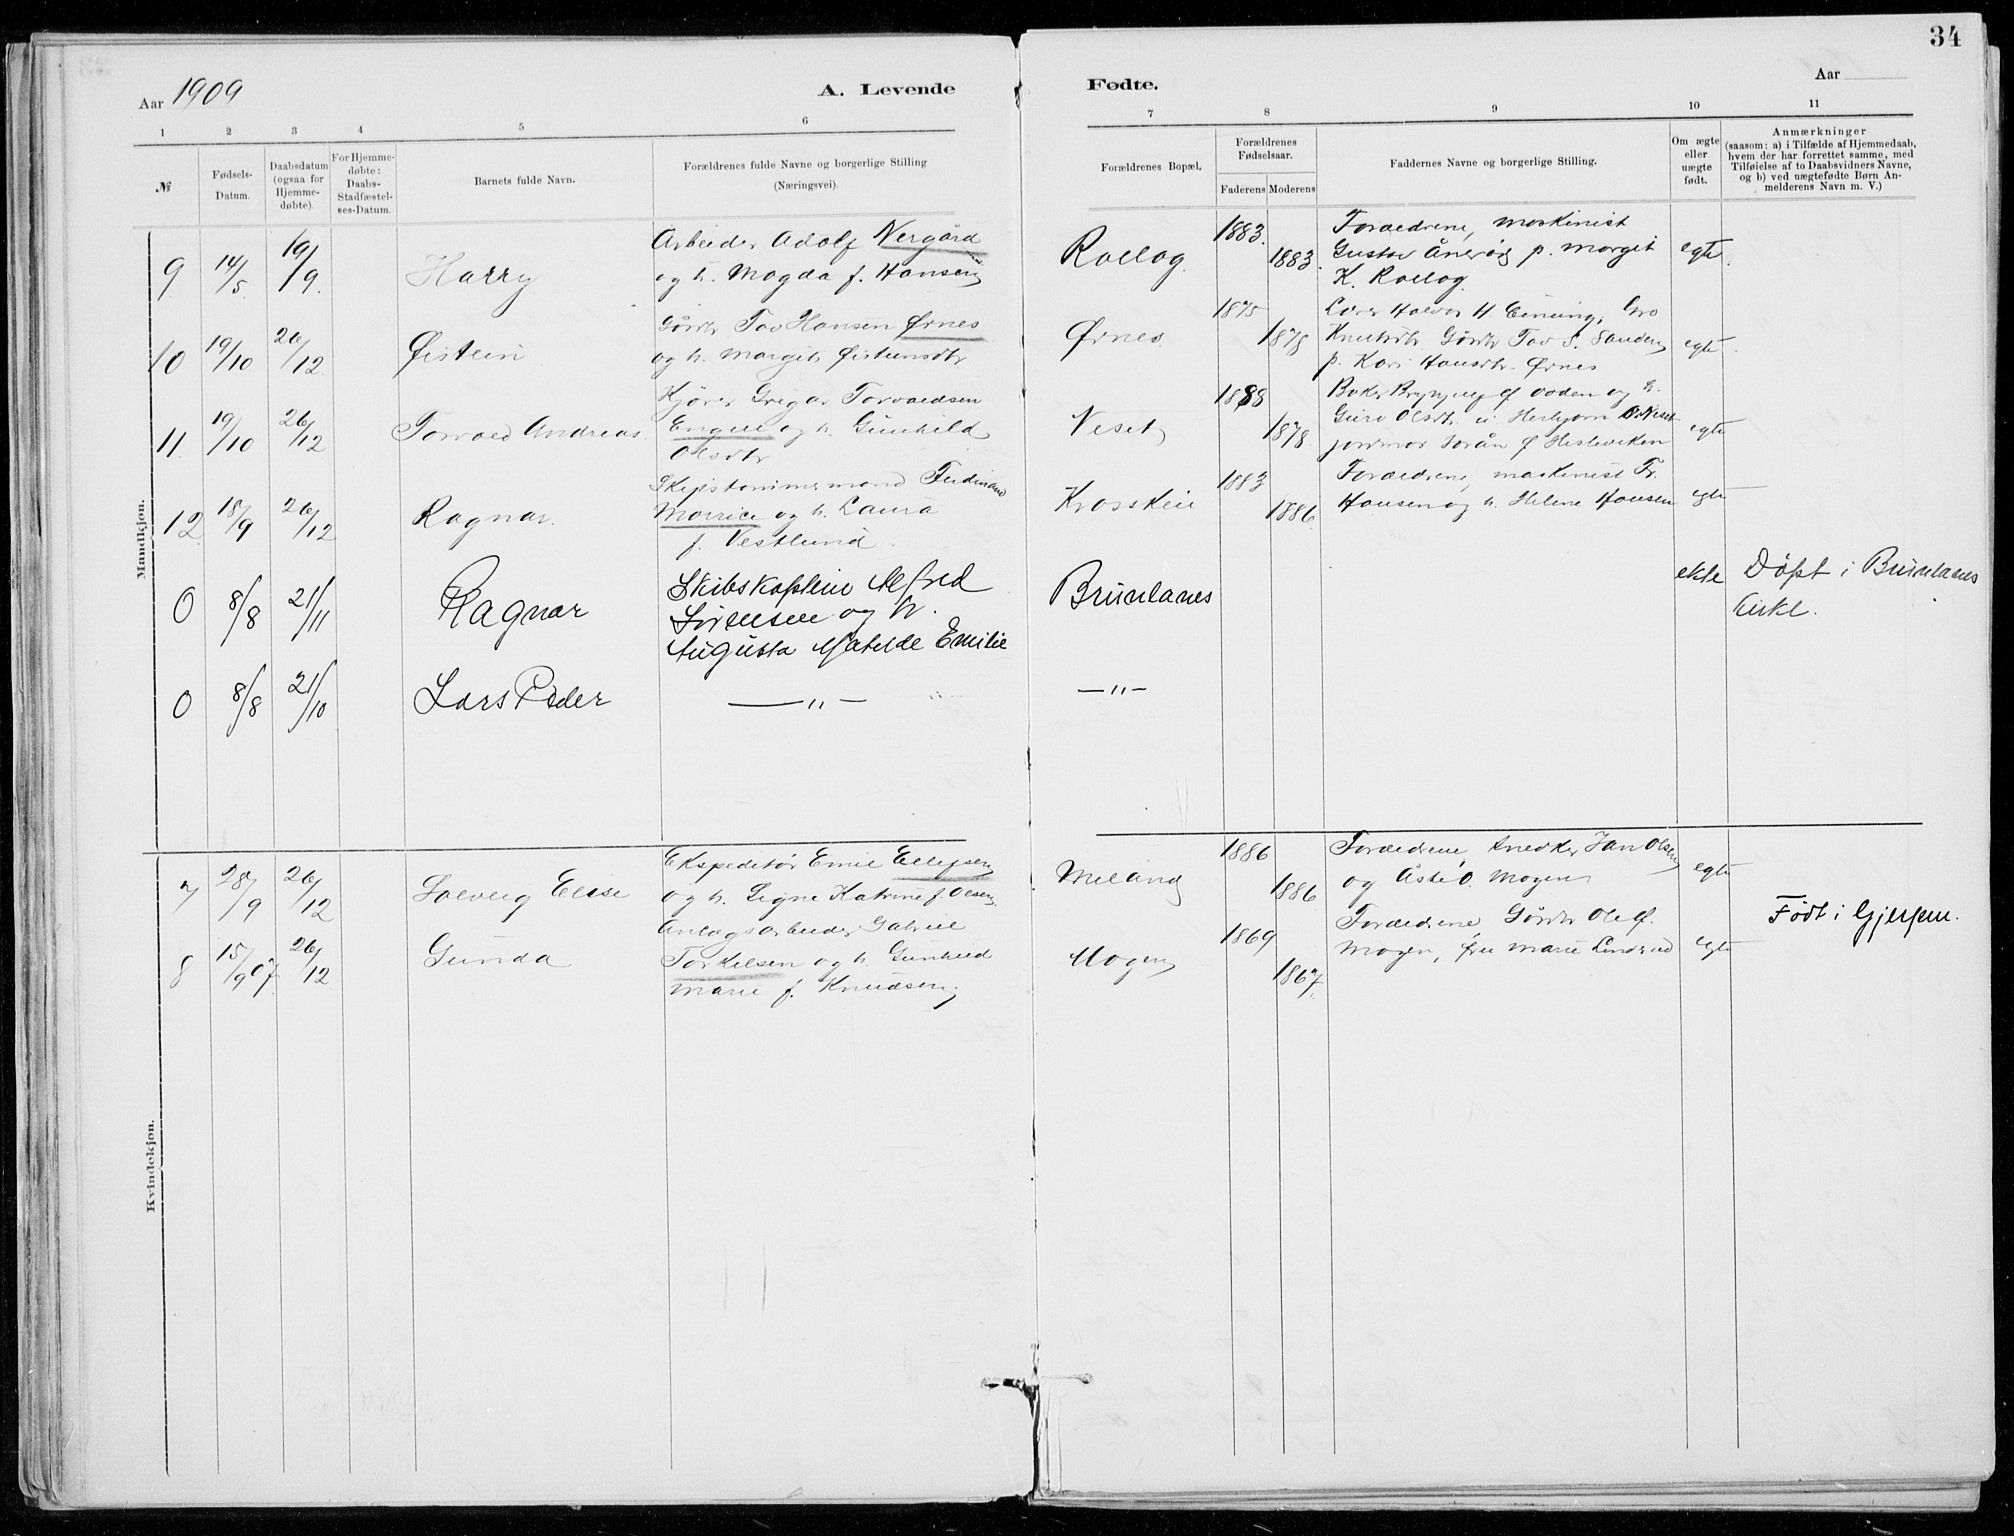 34
Aar 1909
A. Levende
Fødte.
Aar
1 2 3 4 5 6 7 8 9 10 11
№
Fødsels-
Datum.
Daabsdatum
(ogsaa for
Hjemme-
døbte).
For Hjemme-
døbte:
Daabs-
Stadfæstel-
ses-Datum.
Barnets fulde Navn.
Forældrenes fulde Navne og borgerlige Stilling
(Næringsvei).
Forældrenes Bopæl.
Forældrenes
Fødselsaar.
Faderens Moderens
Faddernes Navne og borgerlige Stilling.
Om ægte
eller
uægte
født.
Anmærkninger
(saasom: a) i Tilfælde af Hjemmedaab,
hvem der har forrettet samme, med
Tilføielse af to Daabsvidners Navne,
og b) ved uægtefødte Børn An-
melderens Navn m. V.)
Mandkjøn.
9 14/5 19/9 Harry
Arbeider Adolf Nergård
og h. Magda f. Hansen
Rollag 1883. 1883.
Forældrene, maskinist
Gustav p. Margit
K. Rollag
egte.
10 19/10 26/12 Øistein
Gårdbr Tov Hansen Ørnes
og h. Margit Øisteinsdtr
Ørnes 1875 1878
Lærer Halvor H Eining, Gro
Knutsdtr. Gårdbr Tov S. Sanden
p. Kari Hansdtr. Ørnes
egte.
11 19/10 26/12 Torvald Andreas.
Kjører Gregar Torvaldsen
Engen og h. Gunhild
Olsdtr
Neset 1888 1878
Baker Brynjulf og h.
Guro Olsdtr. Neset
egte
12 18/9 26/12 Ragnar.
Skipstømmermand Ferdinand
og h. Laura
f. Vestlund.
Krosskein 1883 1886
Forældrene, maskinist Fr.
Hansen og h. Helene Hansen
egte
0 8/8 21/11 Ragnar
Skibskaptein Alfred
Sørensen og h.
Augusta Matilde Emilie
Brunlanes
ekte
Døpt i Brunlanes
kirke.
0 8/8 21/10 Lars Peder
—"—
—"—
Kvindekjøn.
7 28/9 26/12 Solveig Elise
Ekspeditør Emil Ellefsen
og h. Signe Katrine f. Olsen.
Meland 1886 1886
Forældrene, snedker Jan Olsen
og Åste O. Mogen
egte
8 15/9 07. 26/12 Gunda
Anlægsarbeider Gabriel
Torkelsen og h. Gunhild
Marie f. Knudsen.
Mogen 1869 1867.
Forældrene, Gårdbr Ole Ø.
Mogen, fru Marie Lindrud
egte
Født i Gjerpen.